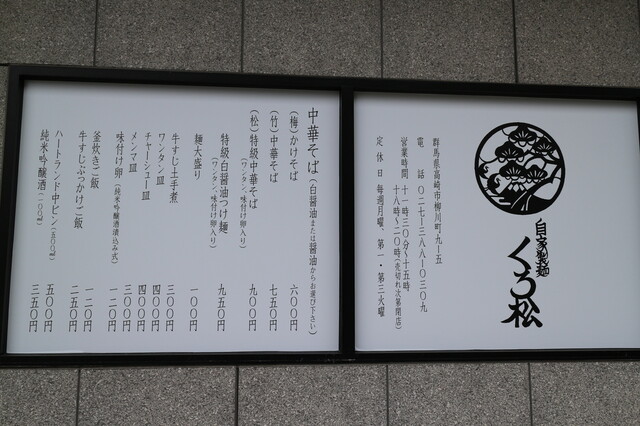 自家製麺
くろ松
群馬県高崎市柳川町九-一五
電　話　〇二七-三八八-一〇三〇九
営業時間　十一時三〇分〜十五時
十八時〜二〇時(売切れ次第閉店)
定休日　毎週月曜、第一・第三火曜
中華そば(白醤油または醤油からお選び下さい)
(梅)かけそば　六〇〇円
(竹)中華そば　七五〇円
(松)特級中華そば　九〇〇円
(ワンタン、味付け卵入り)
特級白醤油つけ麺　九五〇円
(ワンタン、味付け卵入り)
麺大盛り　一〇〇円
牛すじ土手煮　三〇〇円
ワンタン皿　四〇〇円
チャーシュー皿　四〇〇円
メンマ皿　三〇〇円
味付け卵(純米吟醸酒漬込み式)　一二〇円
釜炊きご飯　一二〇円
牛すじぶっかけご飯　二五〇円
ハートランド中ビン(五〇〇㎖)　五〇〇円
純米吟醸酒(一〇〇㎖)　三五〇円